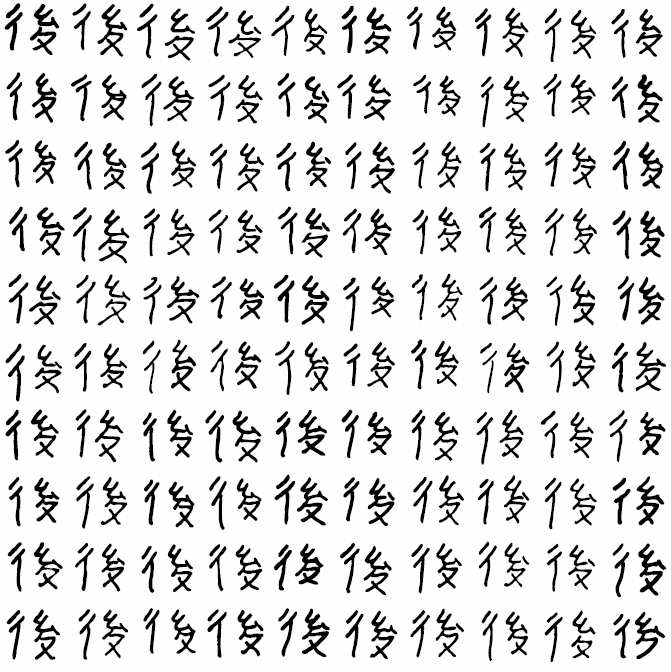 後後後後後後後後後後
後後後後後後後後後後
後後後後後後後後後後
後後後後後後後後後後
後後後後後後後後後後
後後後後後後後後後後
後後後後後後後後後後
後後後後後後後後後後
後後後後後後後後後後
後後後後後後後後後後